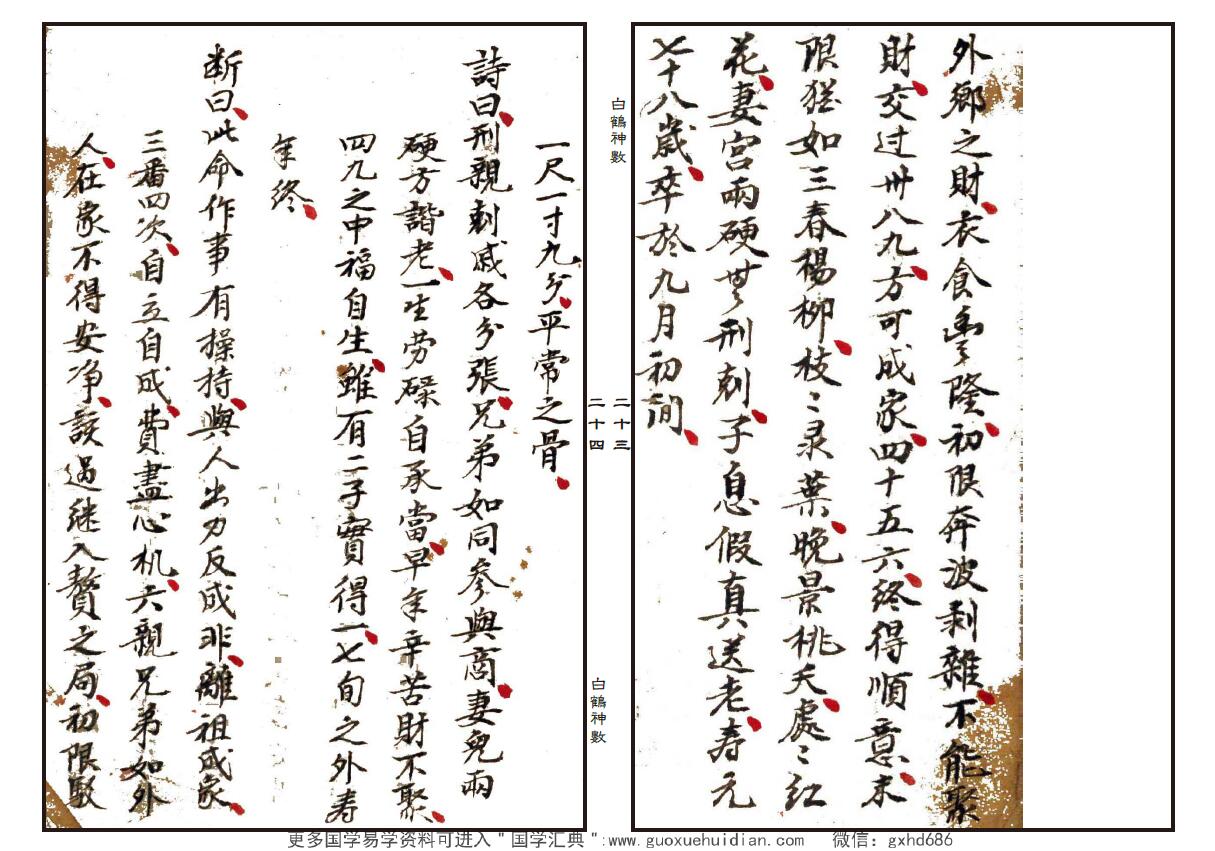 外鄉之財衣食豊隆初限奔波剥雜不能聚
財交过卅八九方可成家四十五六終得順意末
限猶如三春楊柳枝〻录葉晚景桃夭處〻红
花妻宫兩硬無刑剋子息假真送老寿元
七十八歲卒於九月初間
白鶴神數
二十三
二十四
白鶴神數
一尺一寸九分平常之骨
詩曰刑親剋戚各分張兄弟如同參與商妻兒兩
硬方諧老一生劳碌自承當早年辛苦財不聚
四九之中福自生雖有二子實得一七旬之外寿
年終
断曰此命作事有操持與人出力反成非離祖成家
三番四次自立自成費盡心机六親兄弟如外
人在家不得安净該過继入贅之局初限駁
更多国学易学资料可进入＂国学汇典＂:www.guoxuehuidian.com 微信：gxhd686